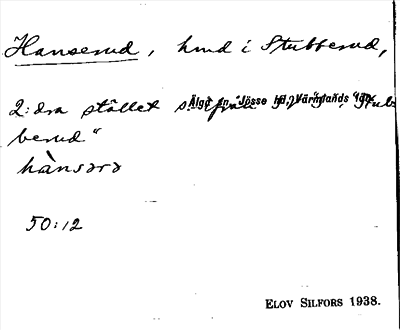 Hanserud, hmd i Stubberud,
Älgå sn Jösse hd, Värmlands län
2:dra stället
berud"
hànsərə
50:12
ELOV SILFORS 1938.